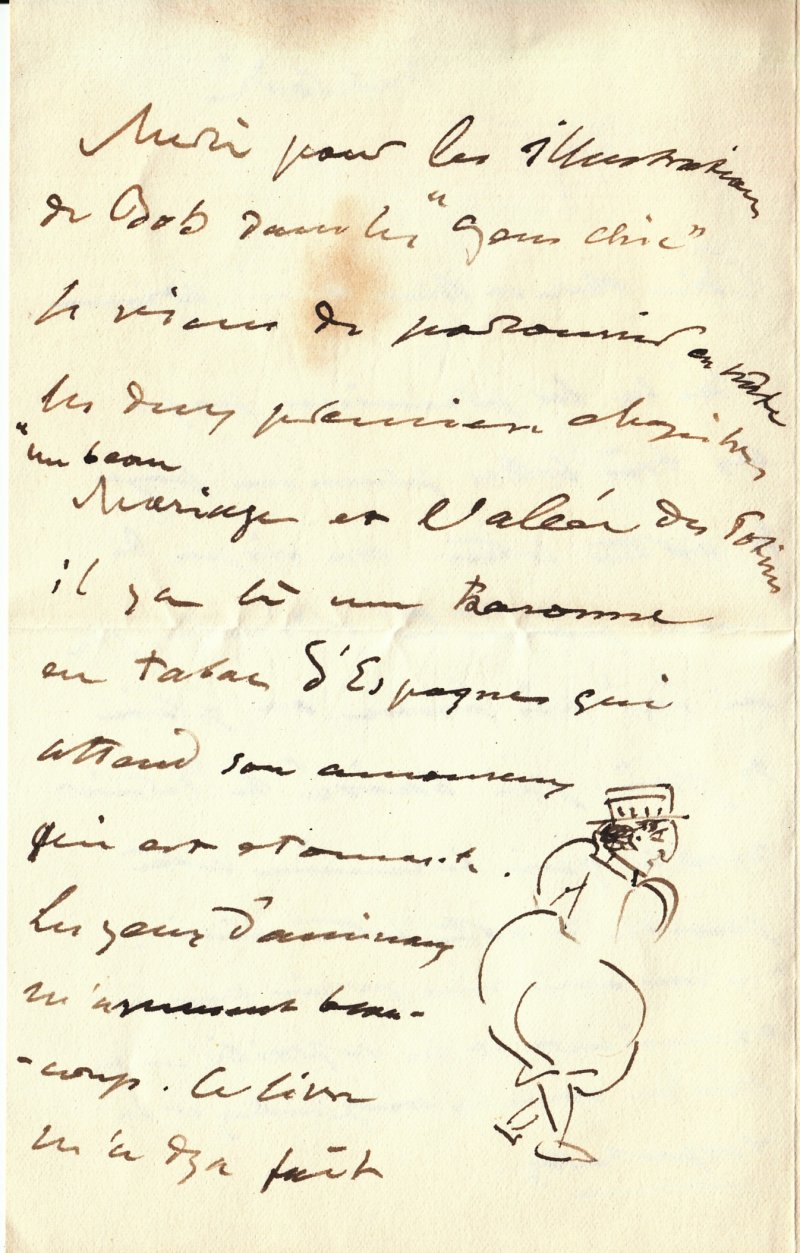 Merci pour les illustrations
de Bob dans les "Gens chic"
Je viens de parcourir en
les deux premiers chapitres
"un beau
Mariage et Vallée des
il y a là une Baronne
en Tabac d'Espagne qui
attend son amoureux
qui est étonnante.
Les yeux d'animaux
m'amusent beau-
-coup. Ce livre
m'a déjà fait